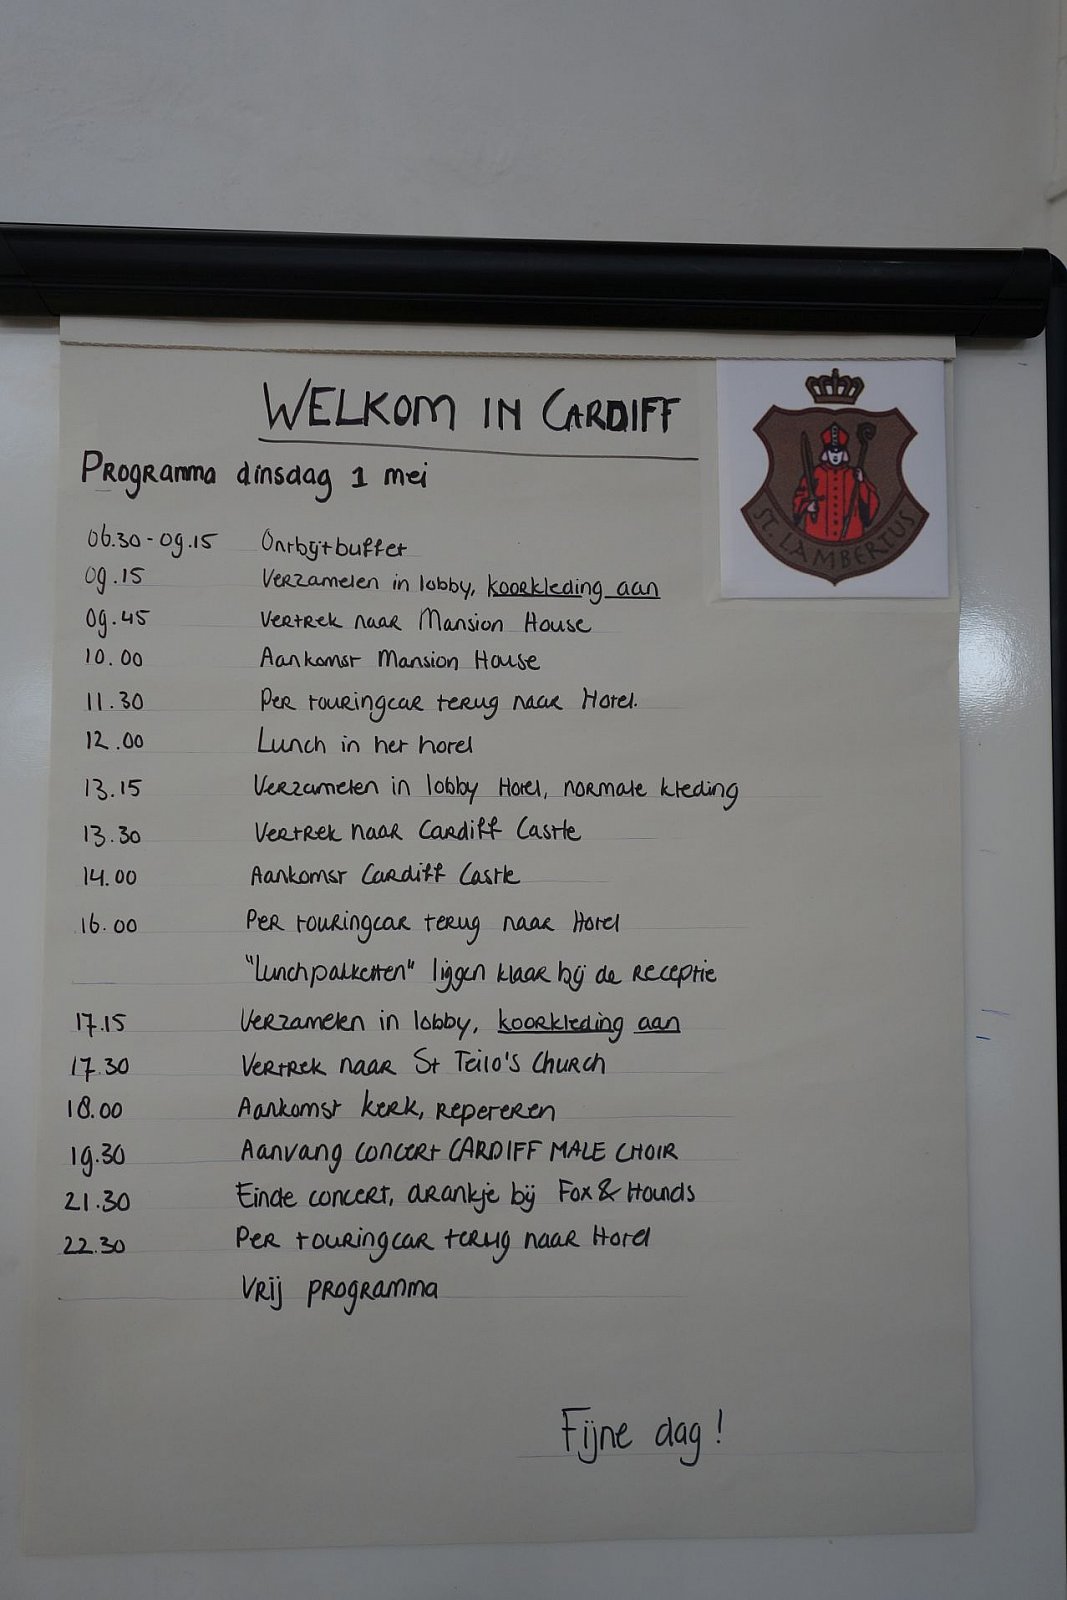 WELKOM IN CARDIFF
Programma dinsdag 1 mei
ST. LAMBERTUS
06.30 - 09.15 Ontbijtbuffet
09.15 Verzamelen in lobby, koorkleding aan
09.45 Vertrek naar Mansion House
10.00 Aankomst Mansion House
11.30 Per touringcar terug naar Hotel.
12.00 Lunch in het hotel
13.15 Verzamelen in lobby Hotel, normale kleding
13.30 Vertrek naar Cardiff Castle
14.00 Aankomst Cardiff Castle
16.00 Per touringcar terug naar Hotel
"Lunchpakketten" liggen klaar bij de receptie
17.15 Verzamelen in lobby, koorkleding aan
17.30 Vertrek naar St Teilo's Church
18.00 Aankomst kerk, repeteren
19.30 Aanvang concert CARDIFF MALE CHOIR
21.30 Einde concert, drankje bij Fox & Hounds
22.30 Per touringcar terug naar Hotel
Vrij programma
Fijne dag!